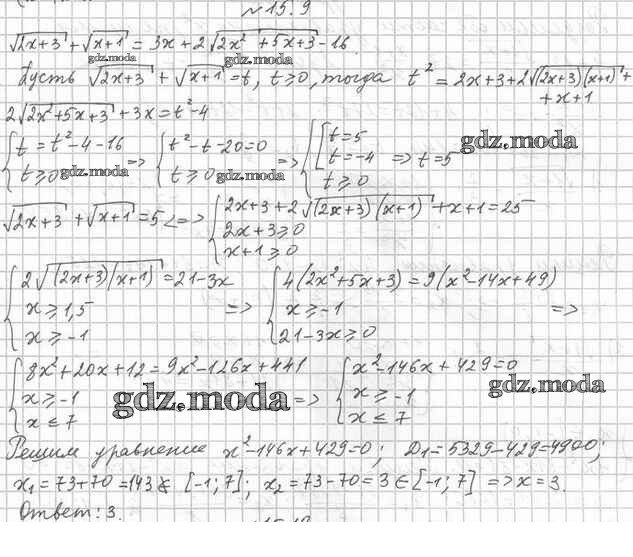 №15.9
√(2x+3) + √(x+1) = 3x + 2√(2x² + 5x + 3) - 16.
gdz.moda gdz.moda
Пусть √(2x+3) + √(x+1) = t, t ⩾ 0, тогда t² = 2x+3+2√((2x+3)(x+1)) +
+x+1
2√(2x²+5x+3) + 3x = t² - 4
{ t = t² - 4 - 16 => { t² - t - 20 = 0 => { [ t = 5
t ⩾ 0 t ⩾ 0 t = -4 => t = 5
t ⩾ 0
gdz.moda gdz.moda gdz.moda
√(2x+3) + √(x+1) = 5 <=> { 2x+3+2√((2x+3)(x+1)) + x+1 = 25
2x+3 ⩾ 0
x+1 ⩾ 0
{ 2√((2x+3)(x+1)) = 21-3x => { 4(2x²+5x+3) = 9(x²-14x+49)
x ⩾ 1,5 x ⩾ -1 =>
x ⩾ -1 21-3x ⩾ 0
{ 8x²+20x+12 = 9x²-126x+441 => { x²-146x+429=0
x ⩾ -1 x ⩾ -1
x ⩽ 7 x ⩽ 7
gdz.moda gdz.moda
Решим уравнение x²-146x+429=0; D₁=5329-429=4900;
x₁=73+70=143 ∉ [-1;7]; x₂=73-70=3 ∈ [-1;7] => x=3.
Ответ: 3.